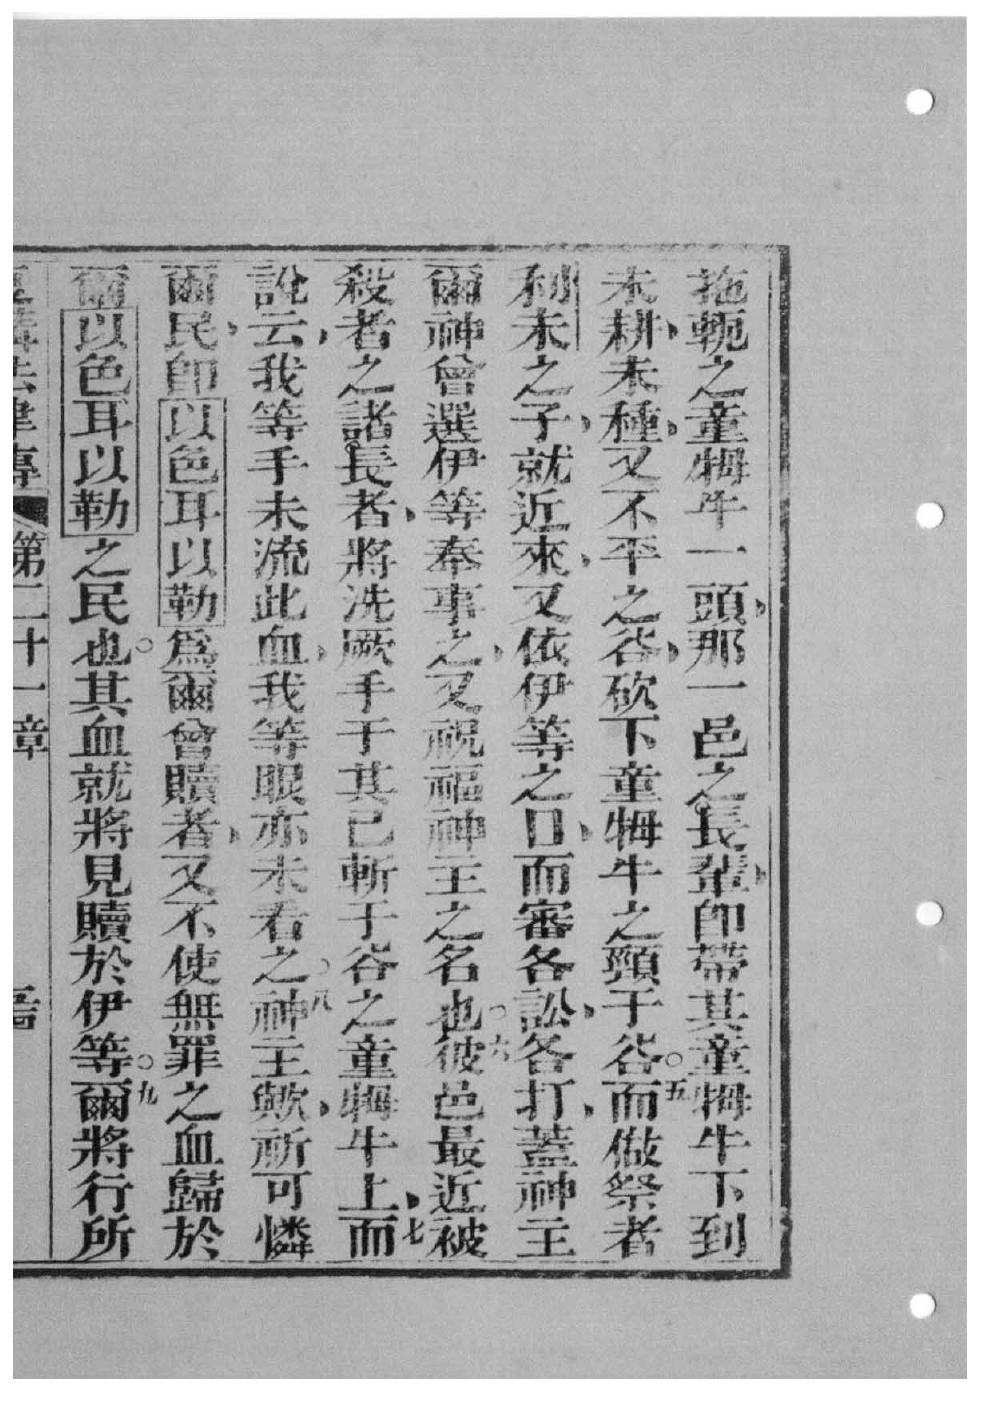 拖軛之童牳牛一頭、那一邑之長輩、卽帶其童牳牛下到
未耕、未種、又不平之谷、砍下童牳牛之頸于谷。五而做祭者
利未之子、就近來、又依伊等之口、而審各訟、各打、蓋神主
爾神曾選伊等奉事之、又祝福神主之名也。六彼邑最近被
殺者之諸長者、將洗厥手于其已斬于谷之童牳牛上、七而
說云、我等手未流此血、我等眼亦未看之。八神主歟、祈可憐
爾民、卽以色耳以勒爲爾曾贖者、又不使無罪之血歸於
爾以色耳以勒之民也。其血就將見贖於伊等。九爾將行所
第二十一章